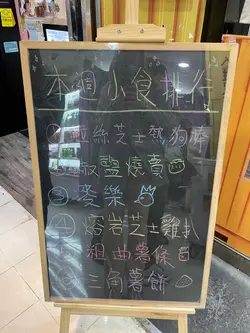 本週小食排行
絲芝士熱狗棒
椒鹽燒賣
③ 麥樂
④ 熔岩芝士雞扒
粗曲薯條
三角薯餅